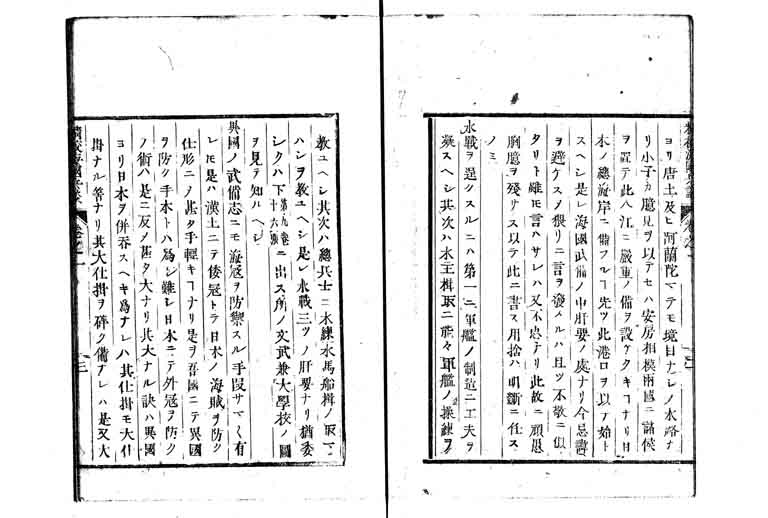 ヨリ唐土及ヒ阿蘭陀マテモ境目ナシノ水路ナ
リ小子カ臆見ヲ以テセハ安房相模兩國ニ諸侯
ヲ置テ此入江ニ嚴重ノ備ヲ設ケタキコナリ日
本ノ總海岸ニ備フルコ先ツ此港口ヲ以テ始ト
スヘシ是レ海國武備ノ中肝要ノ處ナリ今忌諱
ヲ避ケスノ猥リニ言ヲ發スルハ且ツ不敬ニ似
タリト雖モ言ハサレハ又不忠ナリ此故ニ頑愚
胸臆ヲ殘サス以テ此ニ書ス用捨ハ明斷ニ任ス
ノミ
水戰ヲ逞クスルニハ第一ニ軍艦ノ制造ニ工夫ヲ
凝スヘシ其次ハ水主楫取ニ能々軍艦ノ操練ヲ
精校海國兵談 卷之一
教ユヘシ其次ハ總兵士ニ水練水馬船楫ノ取マ
ハシヲ教ユヘシ是レ水戰三ツノ肝要ナリ猶委
シクハ下第九卷十六張ニ出ス所ノ文武兼大學校ノ圖
ヲ見テ知ルヘシ
異國ノ武備志ニモ海寇ヲ防禦スル手段サマ〱有
レモ是ハ漢土ニテ倭寇トテ日本ノ海賊ヲ防ク
仕形ニノ甚タ手輕キコナリ是ヲ吾國ニテ異國
ヲ防ク手本トハ爲シ難シ日本ニテ外寇ヲ防ク
ノ術ハ是ニ反ノ甚タ大ナリ其大ナル訣ハ異國
ヨリ日本ヲ併呑スヘキ爲ナレハ其仕掛モ大仕
掛ナル筈ナリ其大仕掛ヲ碎ク備ナレハ是又大